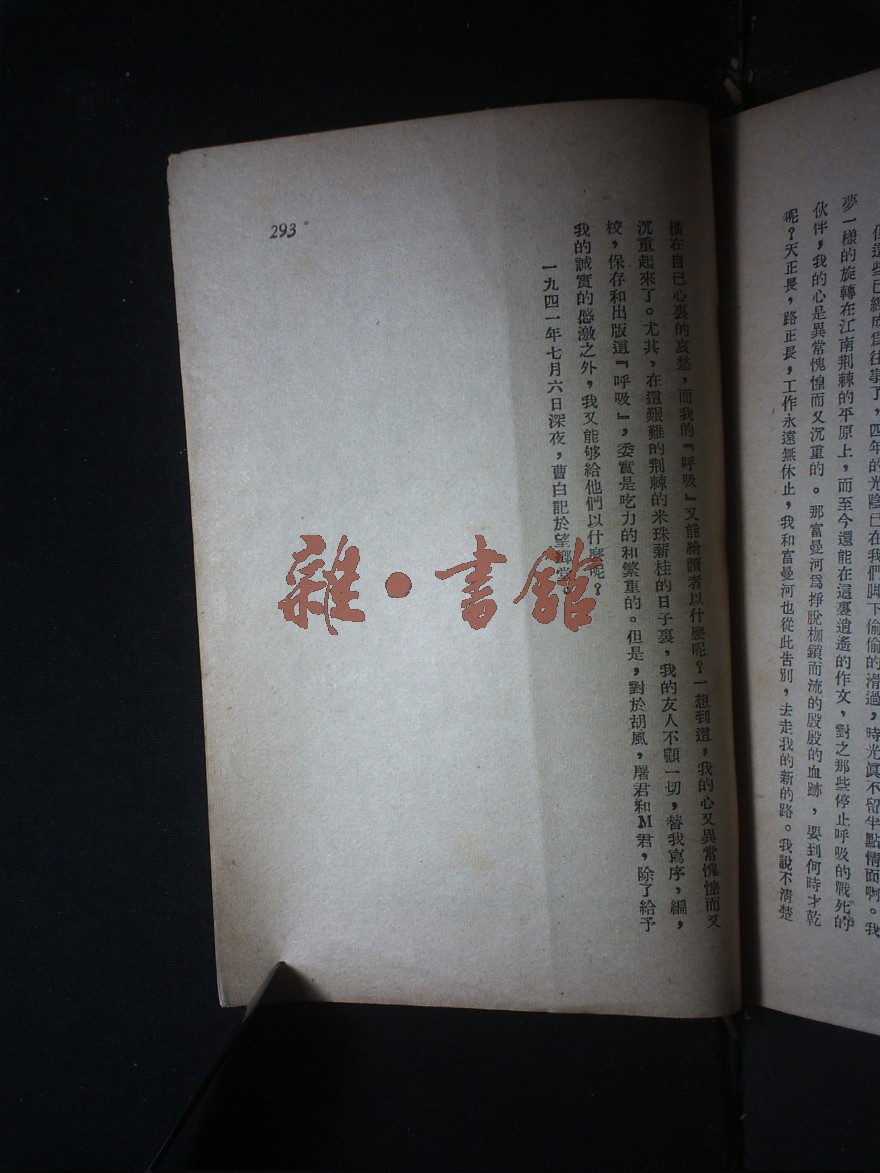 但這些已經成爲往事了，四年的光陰已在我們脚下偷偷的滑過，時光眞不留半點情面啊。我
夢一樣的旋轉在江南荆棘的平原上，而至今還能在這裏逍遙的作文，對之那些停止呼吸的戰死的
伙伴，我的心是異常愧惶而又沉重的。那富曼河爲掙脫枷鎖而流的殷殷的血跡，要到何時才乾
呢？天正長，路正長，工作永遠無休止，我和富曼河也從此告別，去走我的新的路。我說不清楚
橫在自己心裏的哀愁，而我的『呼吸』又能給讀者以什麼呢？一想到這，我的心又異常愧惶而又
沉重起來了。尤其，在這艱難的荆棘的米珠薪桂的日子裏，我的友人不顧一切，替我寫序，編，
校，保存和出版這『呼吸』，委實是吃力的和繁重的。但是，對於胡風，屠君和M君，除了給予
我的誠實的感激之外，我又能够給他們以什麼呢？
一九四一年七月六日深夜，曹白記於望鄉堂
293
雜·書館